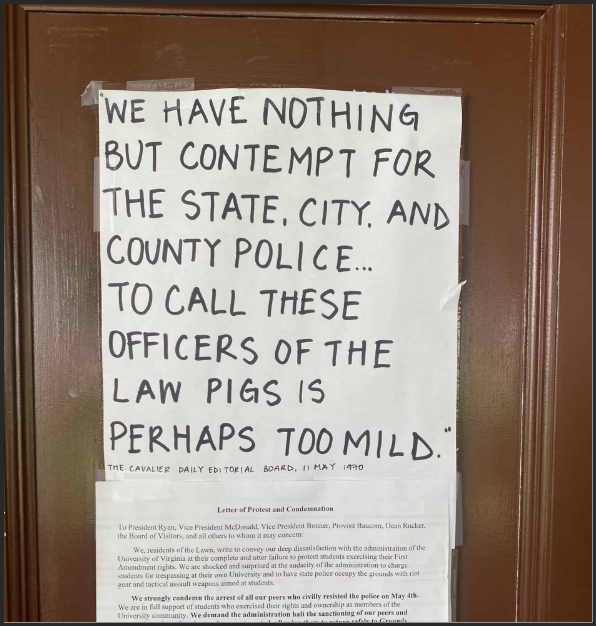 "WE HAVE NOTHING
BUT CONTEMPT FOR
THE STATE, CITY, AND
COUNTY POLICE...
TO CALL THESE
OFFICERS OF THE
LAW PIGS IS
PERHAPS TOO MILD."
THE CAVALIER DAILY EDITORIAL BOARD, 11 MAY 1970
Letter of Protest and Condemnation
To President Ryan, Vice President McDonald, Vice President Bonner, Provost Baucom, Dean Rucker,
the Board of Visitors, and all others to whom it may concern:
We, residents of the Lawn, write to convey our deep dissatisfaction with the administration of the
University of Virginia at their complete and utter failure to protect students exercising their First
Amendment rights. We are shocked and surprised at the audacity of the administration to charge
students for trespassing at their own University and to have state police occupy the grounds with riot
gear and tactical assault weapons aimed at students.
We strongly condemn the arrest of all our peers who civilly resisted the police on May 4th.
We are in full support of students who exercised their rights and ownership as members of the
University community. We demand the administration halt the sanctioning of our peers and